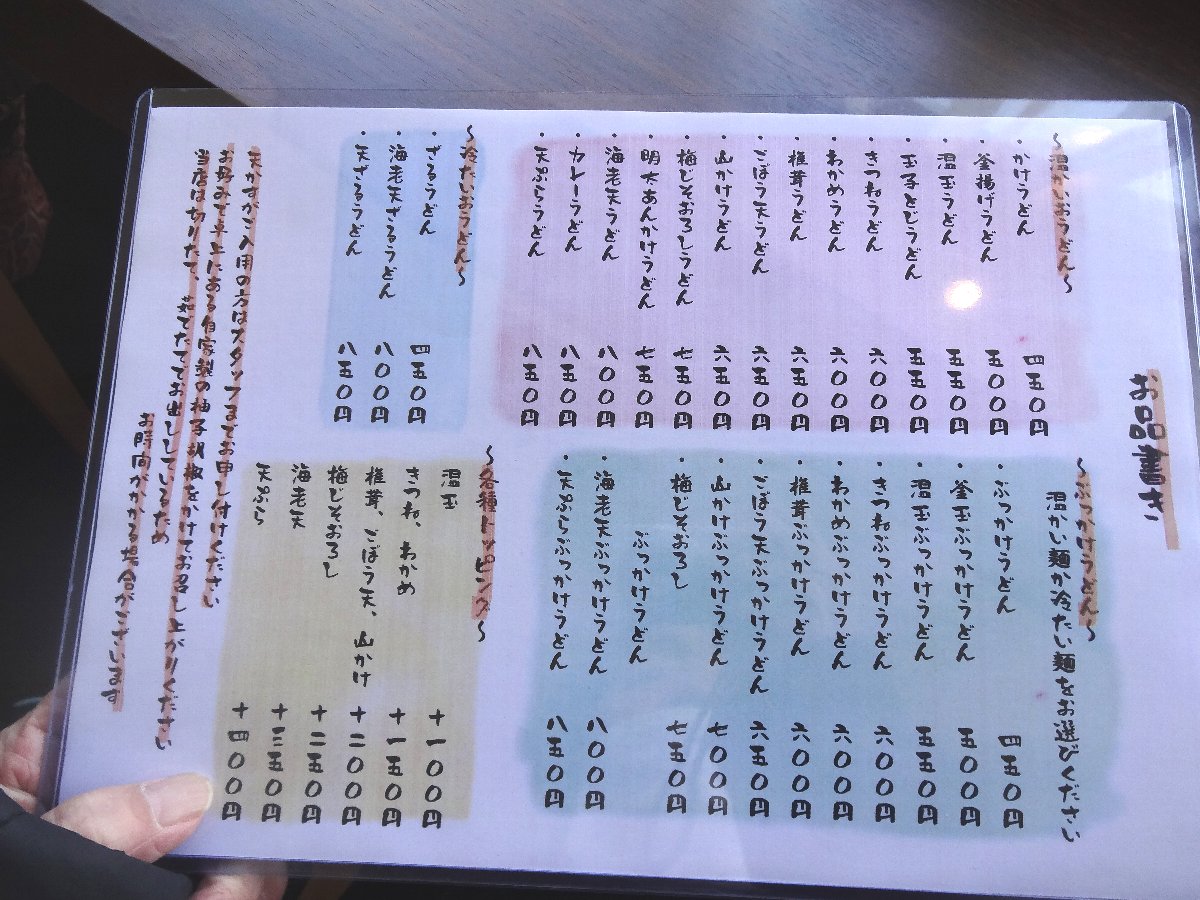 お品書き
〜温かいおうどん〜
・かけうどん 四五〇円
・釜揚げうどん 五〇〇円
・温玉うどん 五五〇円
・玉子とじうどん 五五〇円
・きつねうどん 六〇〇円
・わかめうどん 六〇〇円
・椎茸うどん 六五〇円
・ごぼう天うどん 六五〇円
・山かけうどん 六五〇円
・梅じそおろしうどん 七五〇円
・明太あんかけうどん 七五〇円
・海老天うどん 八〇〇円
・カレーうどん 八五〇円
・天ぷらうどん 八五〇円
〜ぶっかけうどん〜
温かい麺か冷たい麺をお選びください
・ぶっかけうどん 四五〇円
・釜玉ぶっかけうどん 五〇〇円
・温玉ぶっかけうどん 五五〇円
・きつねぶっかけうどん 六〇〇円
・わかめぶっかけうどん 六〇〇円
・椎茸ぶっかけうどん 六〇〇円
・ごぼう天ぶっかけうどん 六五〇円
・山かけぶっかけうどん 七〇〇円
・梅じそおろし 七五〇円
ぶっかけうどん
・海老天ぶっかけうどん 八〇〇円
・天ぷらぶっかけうどん 八五〇円
〜冷たいおうどん〜
・ざるうどん 四五〇円
・海老天ざるうどん 八〇〇円
・天ざるうどん 八五〇円
〜各種トッピング〜
温玉 +一〇〇円
きつね、わかめ +一五〇円
椎茸、ごぼう天、山かけ +二〇〇円
梅じそおろし +二五〇円
海老天 +三五〇円
天ぷら +四〇〇円
天かすがご入用の方はスタッフまでお申し付けください
お好みで卓上にある自家製の柚子胡椒をかけてお召し上がりください
当店は切りたて、茹でたてでお出ししているため
お時間がかかる場合がございます